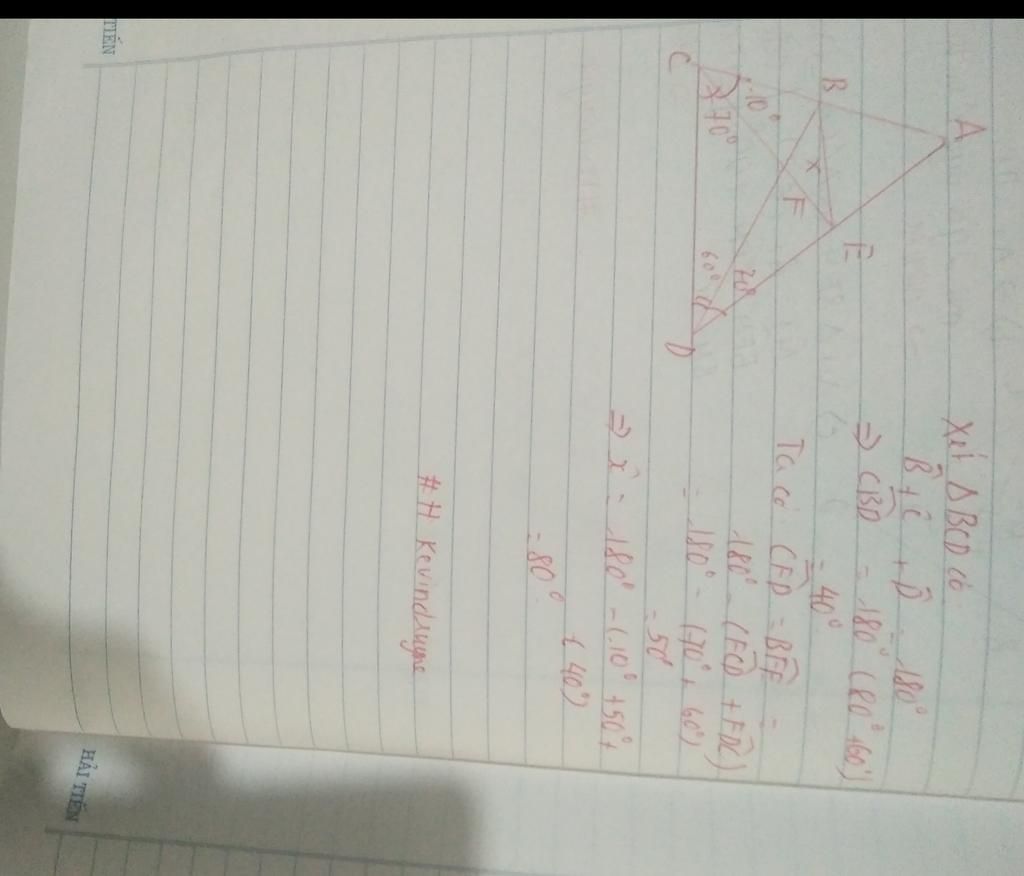 A
B
E
x
F
10°
70°
C
60°
20°
D
Xét ΔBCD có
B̂ + Ĉ + D̂ = 180°
⇒ CBD = 180° (80° + 60°)
= 40°
Ta có CFD = BFE =
180° - (FCD + FDC)
= 180° - (70° + 60°)
= 50°
⇒ x̂ = 180° - (10° + 50° +
( 40°)
= 80°
TIẾN
HẢI TIẾN